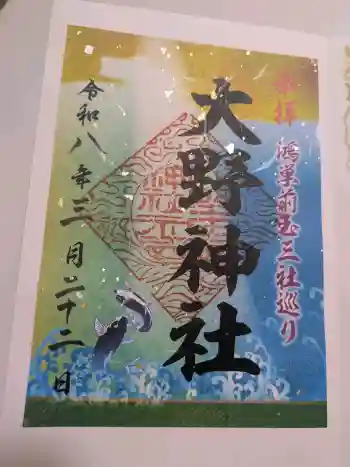 奉拝
鴻巣前玉三社巡り
大野神社
令和八年三月二十二日